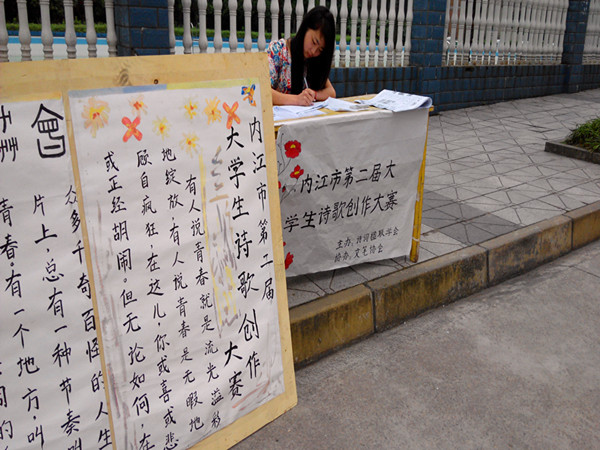 内江市第二届
大学生诗歌创作大赛
有人说青春就是流光溢彩
地绽放,有人说青春是无暇地
顾自疯狂,在这儿,你或喜或悲
或正经胡闹.但无论如何,在
會
州
众多千奇百怪的人生
片上,总有一种节奏叫
青春,有一个地方,叫
内江市第二届大
学生诗歌创作大赛
主办:诗词楹联学会
协办: